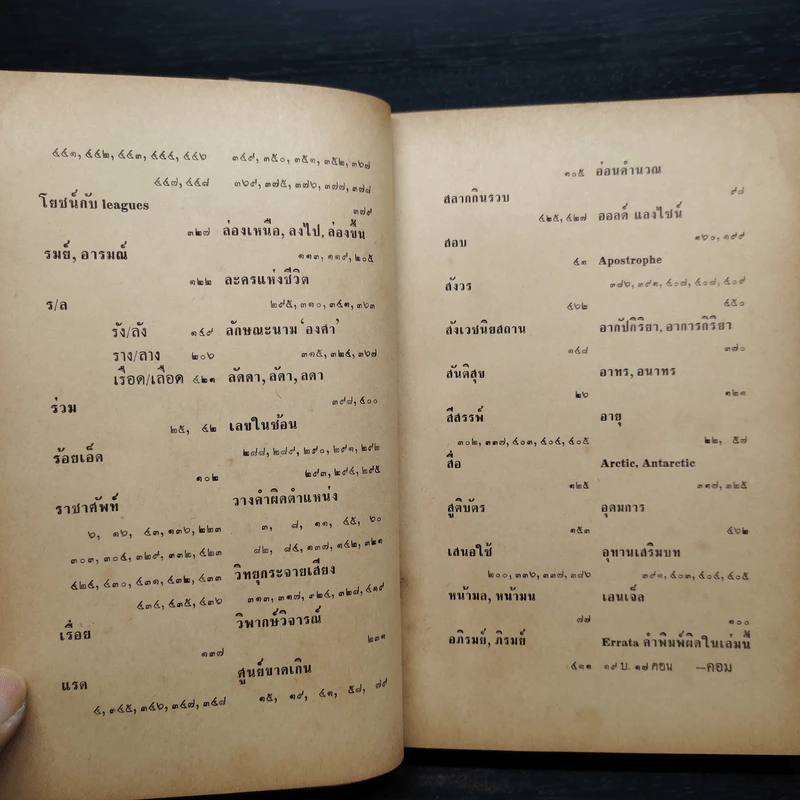 ๔๔๑, ๔๔๒, ๔๔๓, ๔๔๔, ๔๔๖
๔๔๗, ๔๔๘
โยชน์กับ leagues
๓๒๗
รมย์, อารมณ์
๑๒๒
ร/ล
รัง/ลัง ๑๔๙
ราง/ลาง ๒๐๖
เรือด/เลือด ๔๒๑
ร่วม
๒๕, ๔๒
ร้อยเอ็ด
๑๐๒
ราชาศัพท์
๖, ๑๖, ๔๓, ๑๓๖, ๒๒๓
๓๐๓, ๓๐๔, ๓๒๙, ๓๓๒, ๔๒๓
๔๒๔, ๔๓๐, ๔๓๑, ๔๓๒, ๔๓๓
๔๓๔, ๔๓๕, ๔๓๖
เรื่อย
๑๓๗
แรด
๔, ๓๔๕, ๓๔๖, ๓๔๗, ๓๔๘
๓๔๙, ๓๕๐, ๓๕๑, ๓๕๒, ๓๖๗
๓๖๙, ๓๗๕, ๓๗๖, ๓๗๗, ๓๗๘
๓๗๙
ล่องเหนือ, ลงไป, ล่องขึ้น
๑๑๓, ๑๑๙, ๒๐๕
ละครแห่งชีวิต
๒๙๕, ๓๑๐, ๓๔๑, ๓๖๓
ลักษณะนาม ‘องศา’
๓๑๕, ๓๒๔, ๓๖๗
ลัดดา, ลัดา, ลดา
๓๙๘, ๔๐๐
เลขในช้อน
๒๘๘, ๒๘๙, ๒๙๐, ๒๙๑, ๒๙๒
๒๙๓, ๒๙๔, ๒๙๕
วางคำผิดตำแหน่ง
๓, ๘, ๑๑, ๔๕, ๖๐
๘๒, ๘๔, ๑๓๗, ๑๔๒, ๓๒๑
วิทยุกระจายเสียง
๓๑๓, ๓๑๗, ๓๒๔, ๓๒๘, ๔๑๙
วิพากษ์วิจารณ์
๒๓๑
ศูนย์ขาดเกิน
๑๕, ๑๙, ๔๑, ๕๘, ๗๙
๑๐๕
สลากกินรวบ
๔๒๕, ๔๒๗
สอบ
๔๑
สังวร
๔๖๒
สังเวชนิยสถาน
๑๔๘
สันติสุข
๒๖
สีสรรพ์
๓๐๒, ๓๓๗, ๔๐๓, ๔๐๔, ๔๐๕
สื่อ
๑๒๕
สูติบัตร
๑๕๓
เสนอใช้
๒๐๐, ๓๓๖, ๓๓๗, ๓๘๖
หน้ามล, หน้ามน
๗๗
อภิรมย์, ภิรมย์
๔๑๑
อ่อนคำนวณ
๙๘
ออลด์ แลงไซน์
๑๖๐, ๑๙๙
Apostrophe
๓๘๖, ๓๙๑, ๔๐๗, ๔๐๘, ๔๐๙
๔๕๐
อากัปกิริยา, อาการกิริยา
๓๗๐
อาทร, อนาทร
๑๒๑
อายุ
๒๒, ๕๗
Arctic, Antarctic
๓๑๗, ๓๒๕
อุดมการ
๔๖๒
อุทานเสริมบท
๓๙๑, ๔๐๓, ๔๐๔, ๔๐๕
เอนเจ็ล
๑๐๐
Errata คำพิมพ์ผิดในเล่มนี้
๑๙ บ. ๑๗ คอน —คอม